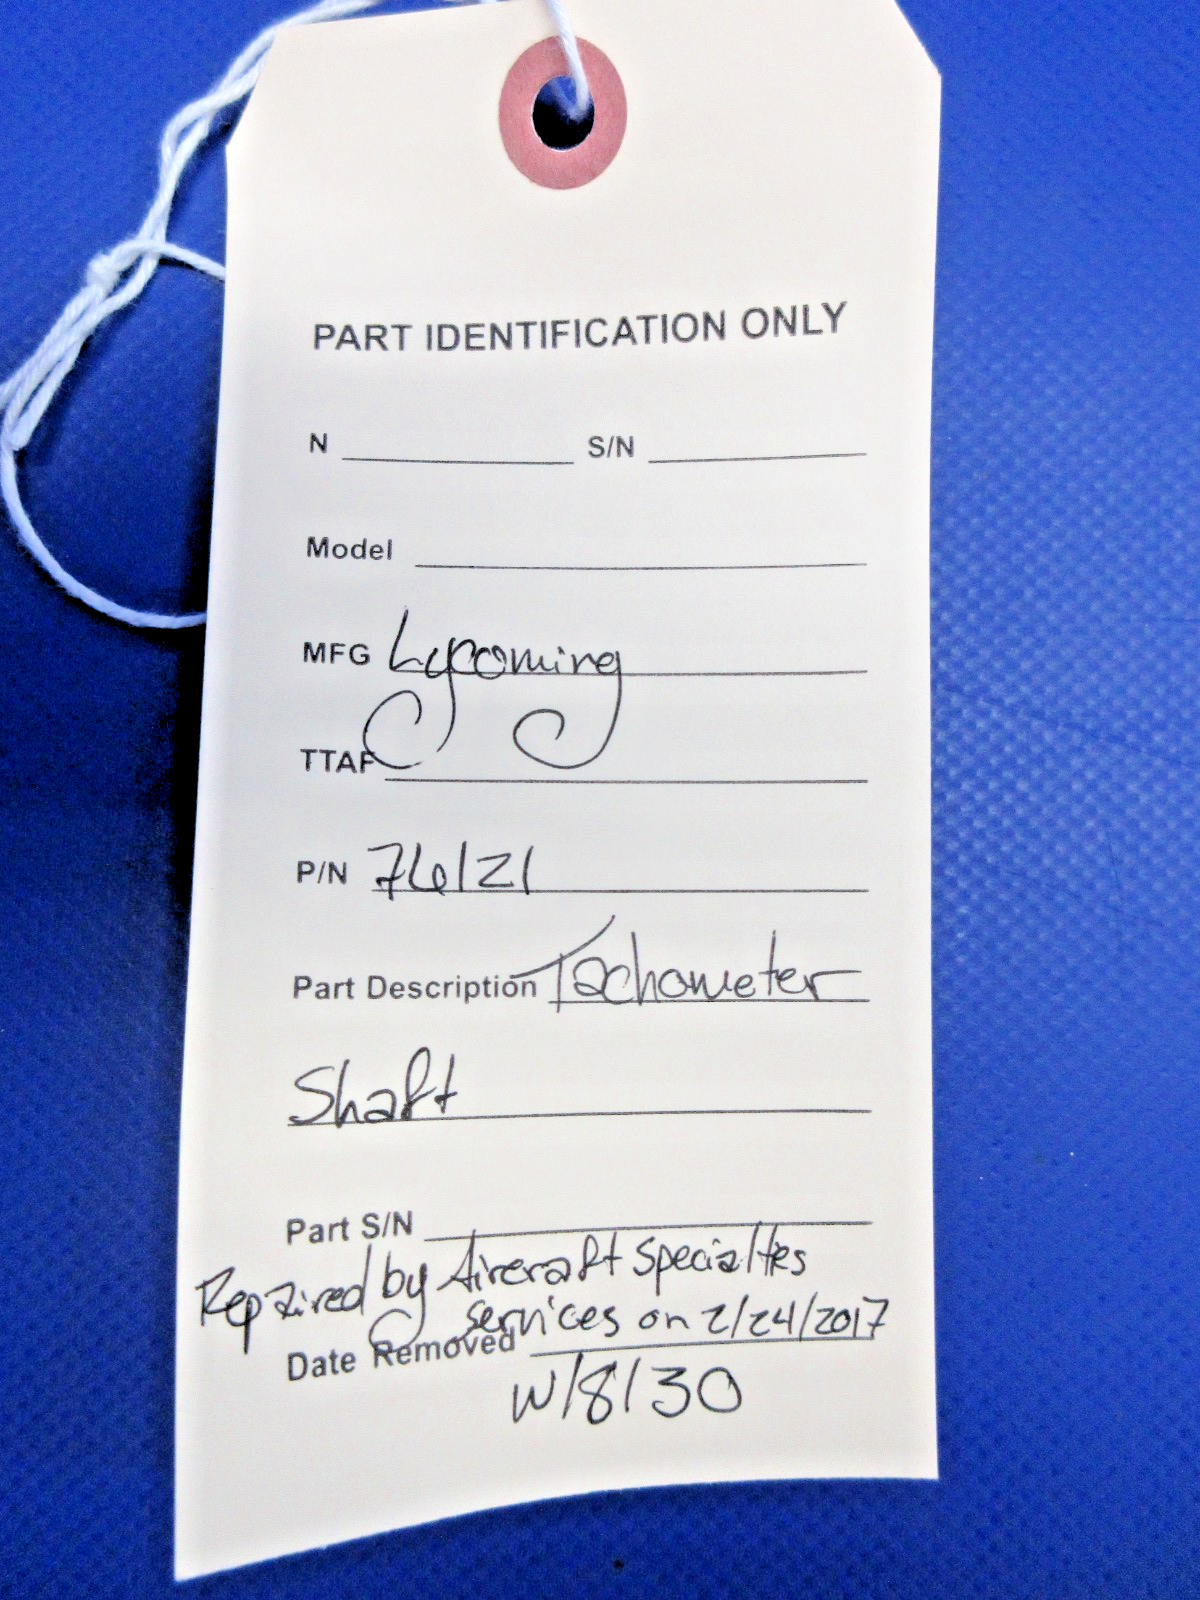 PART IDENTIFICATION ONLY
N S/N
Model
MFG Lycoming
TTAF
P/N 76121
Part Description Tachometer
Shaft
Part S/N
Repaired by Aircraft Specialties
services on 2/24/2017
Date Removed
W/8130